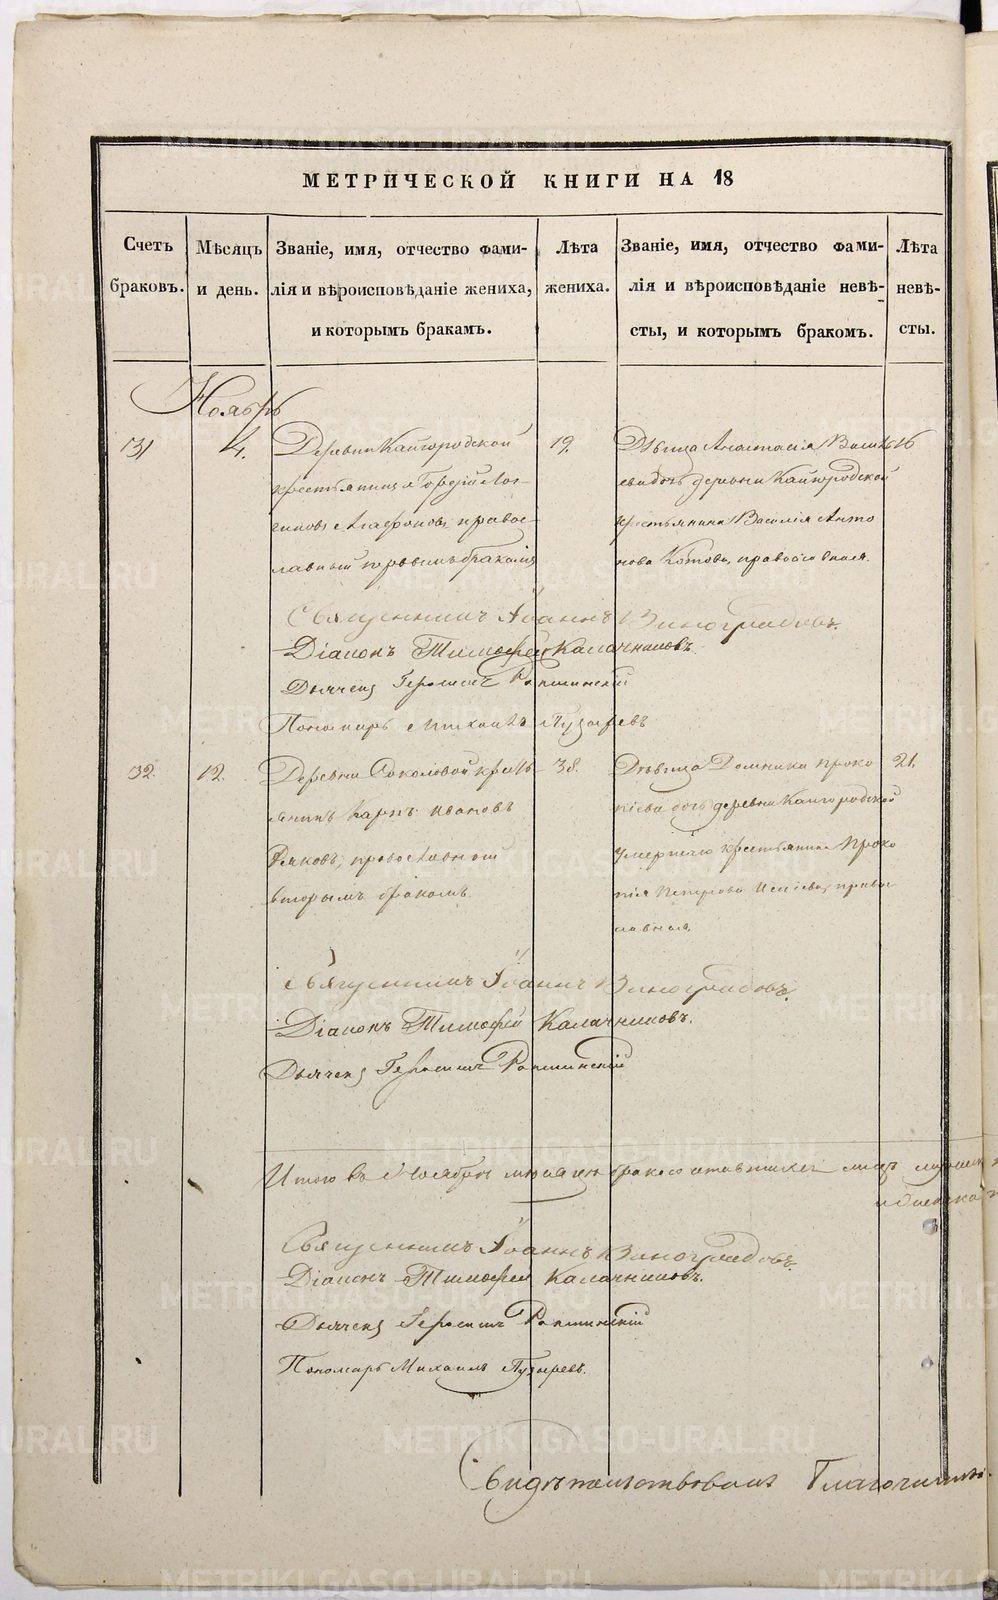 МЕТРИЧЕСКОЙ КНИГИ НА 18
Счетъ браковъ.
Мѣсяцъ и день.
Званіе, имя, отчество фами-
лія и вѣроисповѣданіе жениха,
и которымъ бракамъ.
Лѣта жениха.
Званіе, имя, отчество фами-
лія и вѣроисповѣданіе невѣ-
сты, и которымъ бракомъ.
Лѣта невѣ-
сты.
Ноябрь
31
4.
Деревни Кайгородской
православный первымъ бракомъ
19.
Дѣвица Анастасія Василь
ева дочь деревни Кайгородской
крестьянина Василія Анто
нова Котова, православная.
16
Священникъ Іоаннъ Виноградовъ.
Діаконъ Тимофей Калачниковъ.
Дьячекъ Герасимъ
Пономарь Михаилъ Пузыревъ
32.
12.
Деревни Соколовой кресть-
янинъ Карпъ Ивановъ
православный
вторымъ бракомъ.
38.
Дѣвица Домника Проко
піева дочь деревни Кайгородской
умершаго крестьянина Проко
пія Петрова православная.
21.
Священникъ Іоаннъ Виноградовъ.
Діаконъ Тимофей Калачниковъ.
Дьячекъ Герасимъ
Итого въ Ноябрѣ мѣсяцѣ бракосочетавшихся лицъ
Священникъ Іоаннъ Виноградовъ.
Діаконъ Тимофей Калачниковъ.
Дьячекъ Герасимъ
Пономарь Михаилъ Пузыревъ.
Свидѣтельствовалъ Благочинный
METRIKI.GASO-URAL.RU